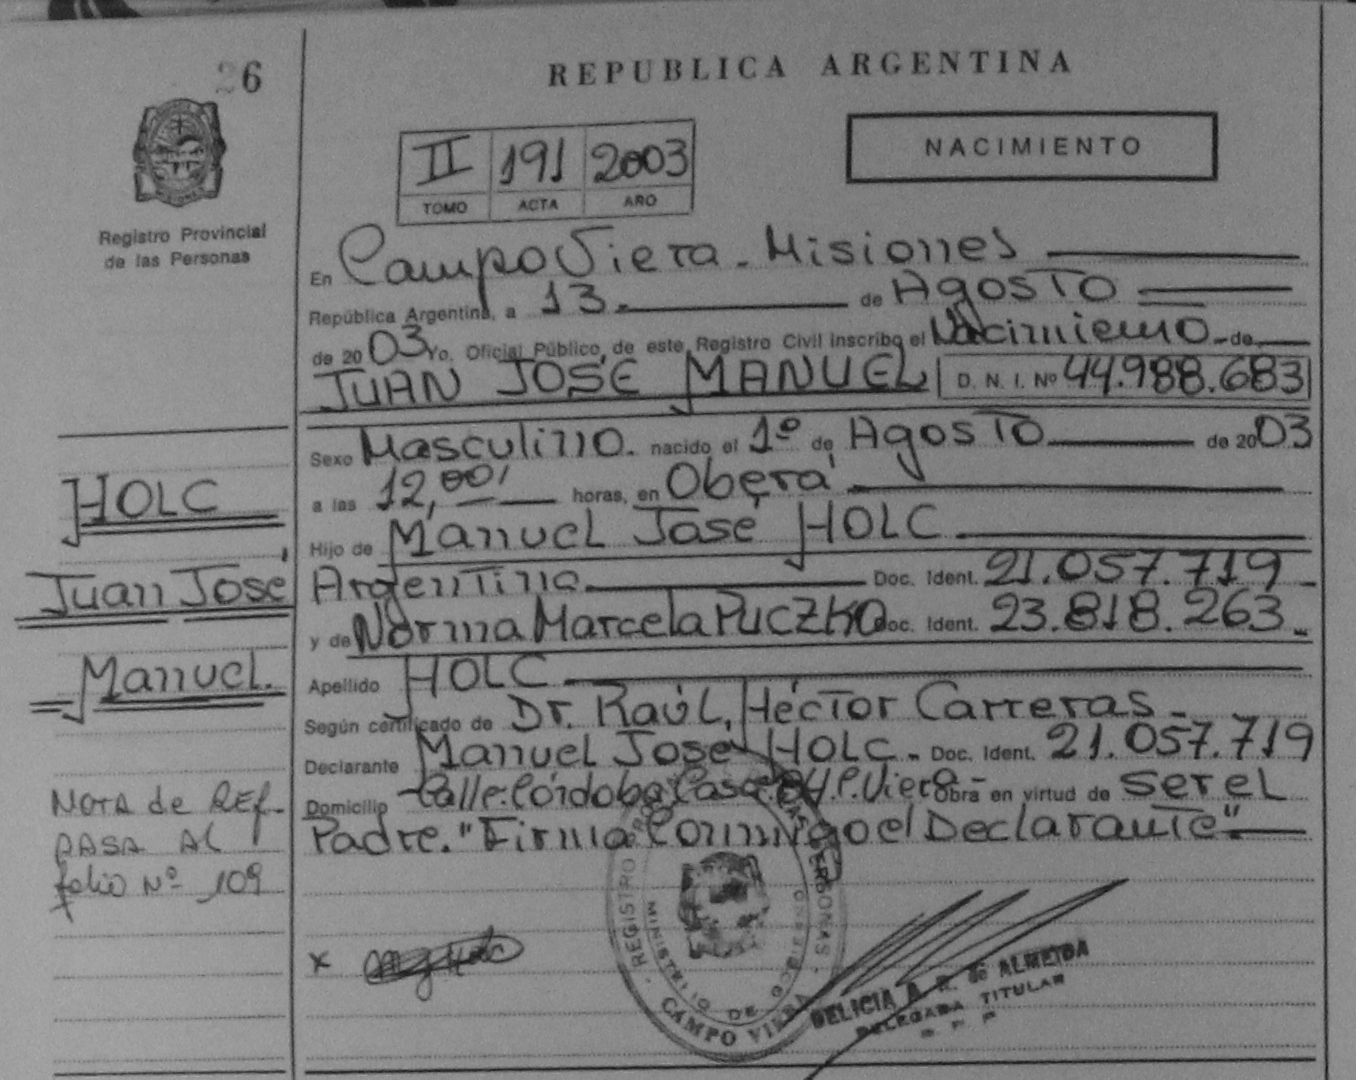 26
REPUBLICA ARGENTINA
NACIMIENTO
II 191 2003
TOMO ACTA AÑO
Registro Provincial
de las Personas
En Campo Viera - Misiones
República Argentina, a 13. de Agosto
de 2003 Yo, Oficial Público, de este Registro Civil inscribo el Nacimiento de
JUAN JOSÉ MANUEL D. N. I. Nº 44.988.683
Sexo Masculino. nacido el 1º de Agosto de 2003
a las 12,00' horas, en Oberá
Hijo de Manuel José HOLC
Argentina Doc. Ident. 21.057.719
y de Norma Marcela PUCZKO Doc. Ident. 23.818.263
Apellido HOLC
Según certificado de Dr. Raúl Héctor Carreras
Declarante Manuel José HOLC - Doc. Ident. 21.057.719
Domicilio Calle: Córdoba Casa C. Viera - Obra en virtud de ser el
Padre. "Firma Conmigo el Declarante"
HOLC
Juan José
Manuel.
NOTA de REf.
PASA AL
folio Nº 109
x
REGISTRO PERSONAS
MINISTERIO DE GOBIERNO
CAMPO VIERA
DELICIA A. R. de ALMEIDA
DELEGADA TITULAR
R. P. P.